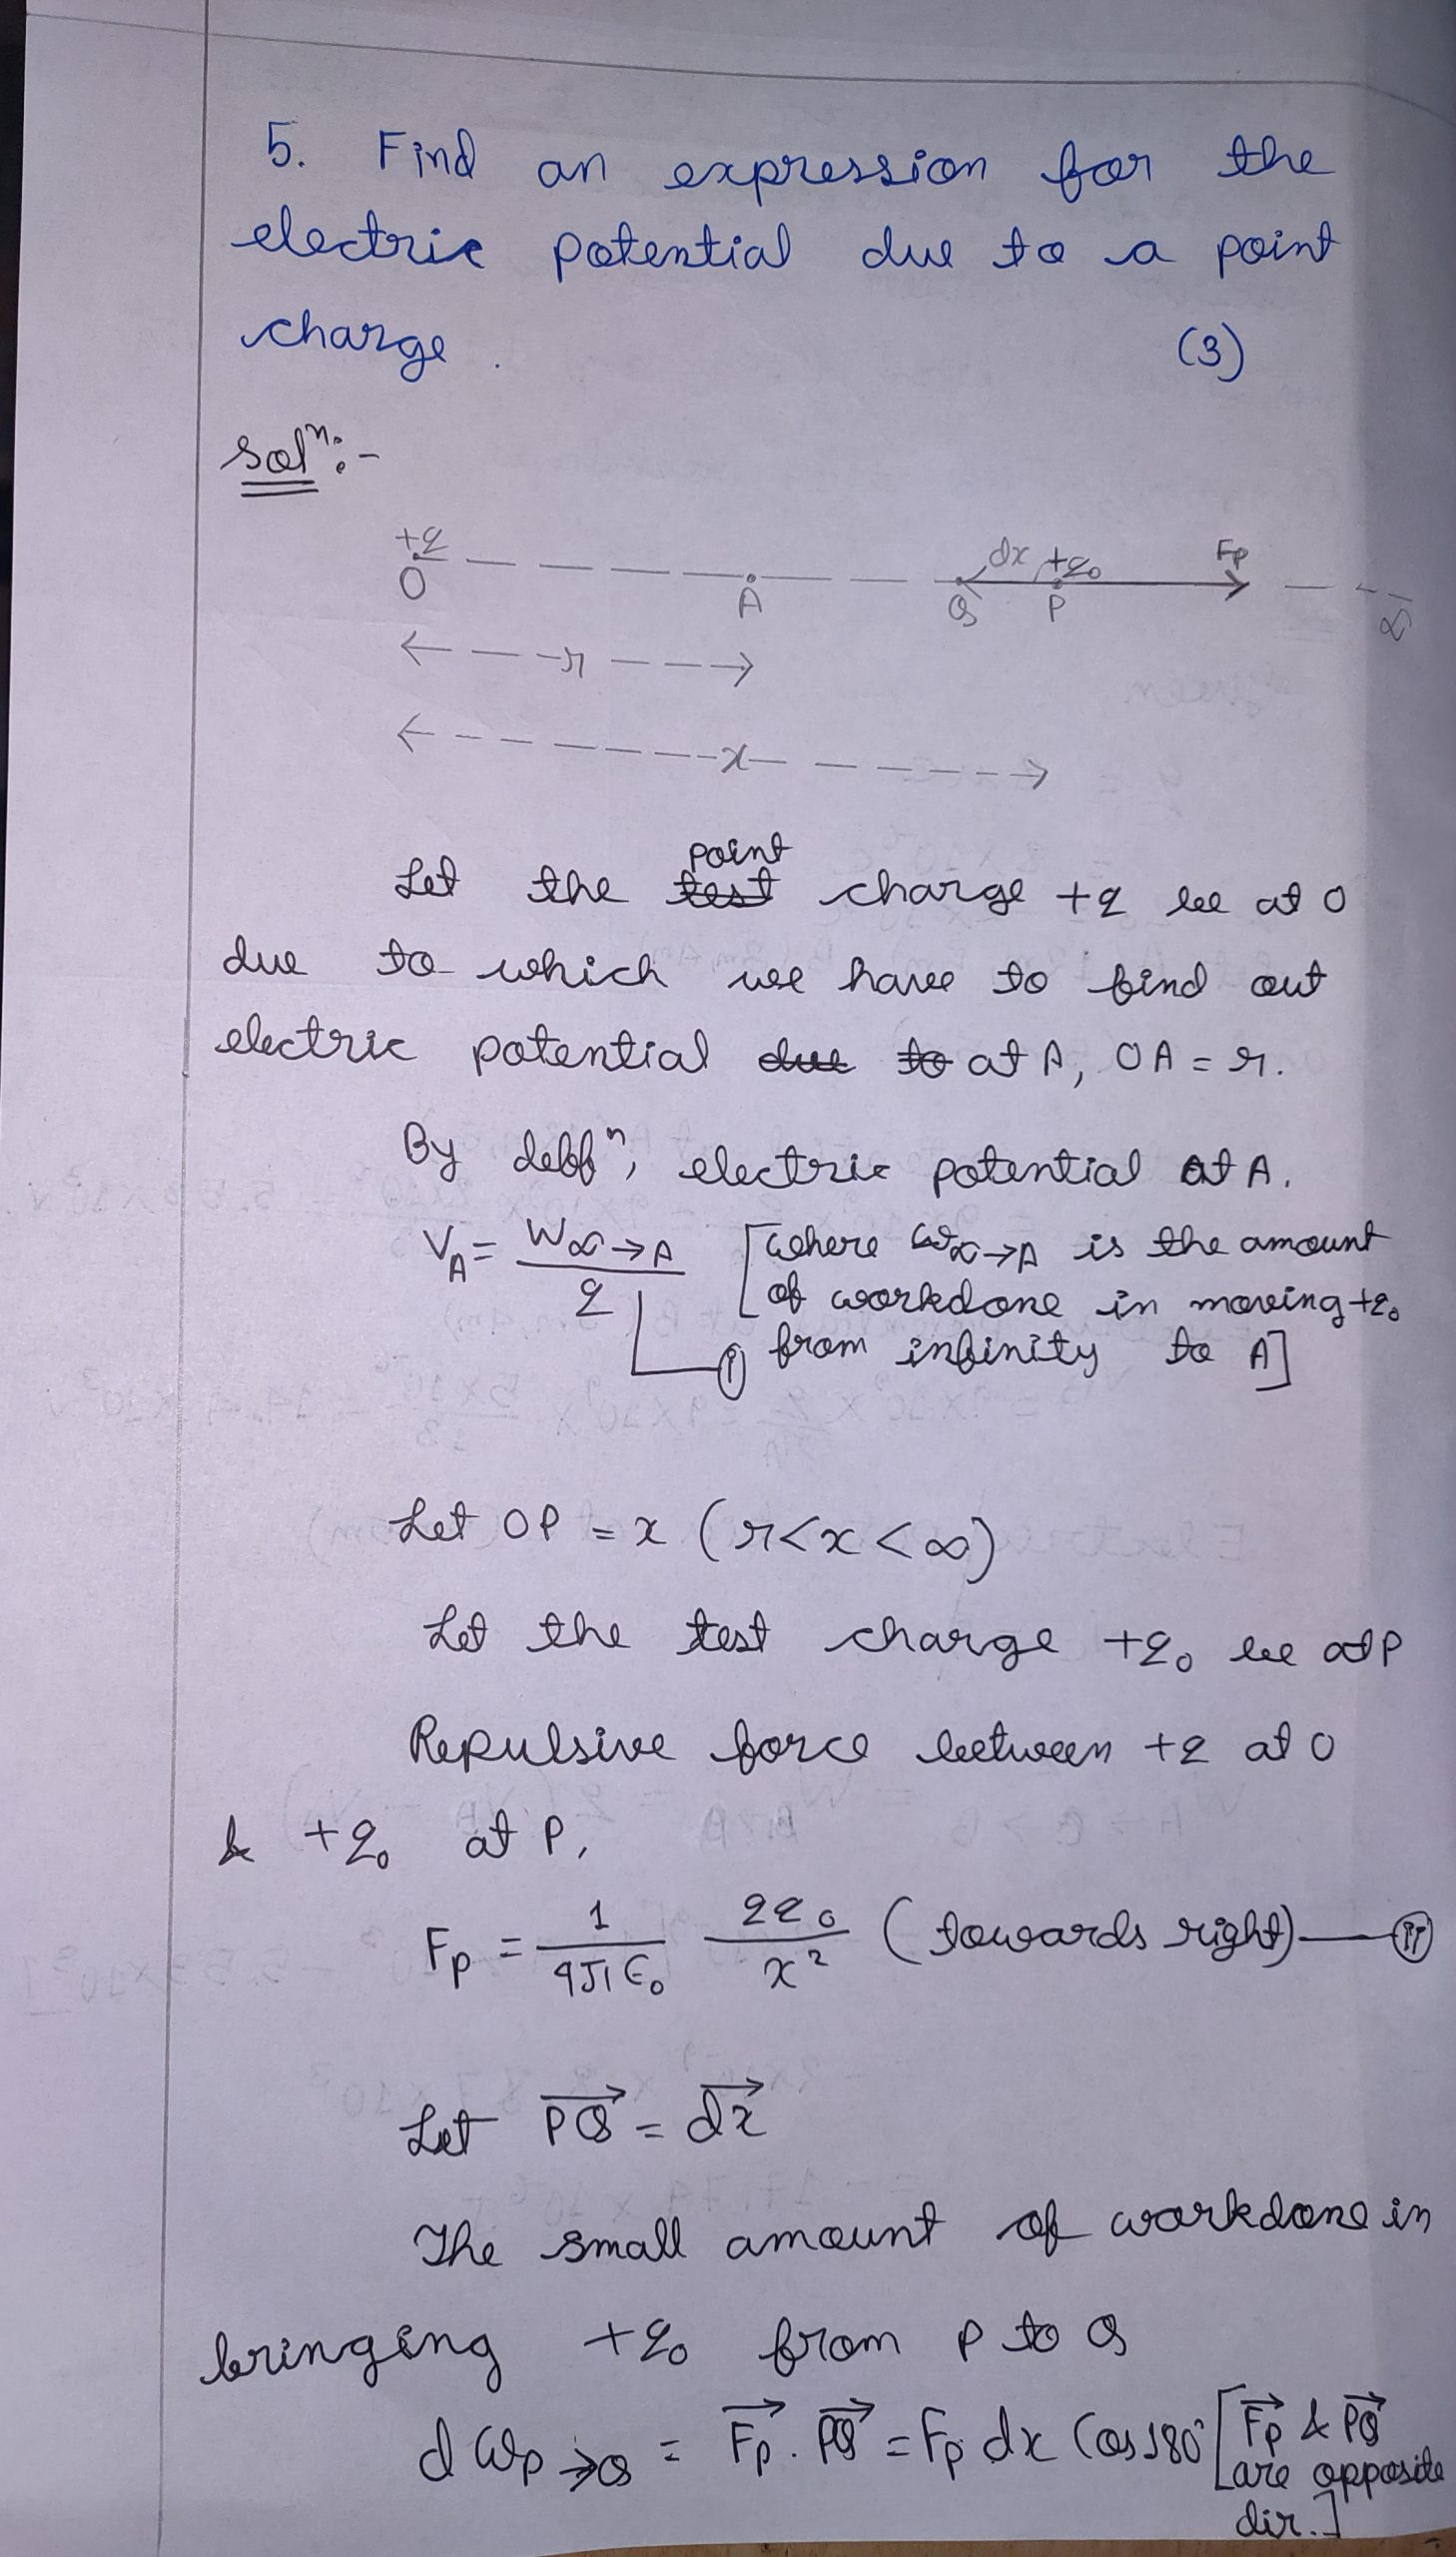 5. Find an expression for the
electric potential due to a point
charge. (3)
solⁿ:-
+q dx +q₀ Fp
O A Q P ∞
r
x
point
Let the test charge +q be at O
due to which we have to find out
electric potential due to at A, OA = r.
By deffⁿ, electric potential at A.
V_A = W∞→A / q [where W∞→A is the amount
of workdone in moving +q₀
(i) from infinity to A]
Let OP = x (r<x<∞)
Let the test charge +q₀ be at P
Repulsive force between +q at O
& +q₀ at P,
Fp = 1/4πε₀ qq₀/x² (towards right) — (ii)
Let PQ⃗ = dx⃗
The small amount of workdone in
bringing +q₀ from P to Q
dWp→Q = Fp⃗ . PQ⃗ = Fp dx Cos 180° [Fp⃗ & PQ⃗
are opposite
dir.]